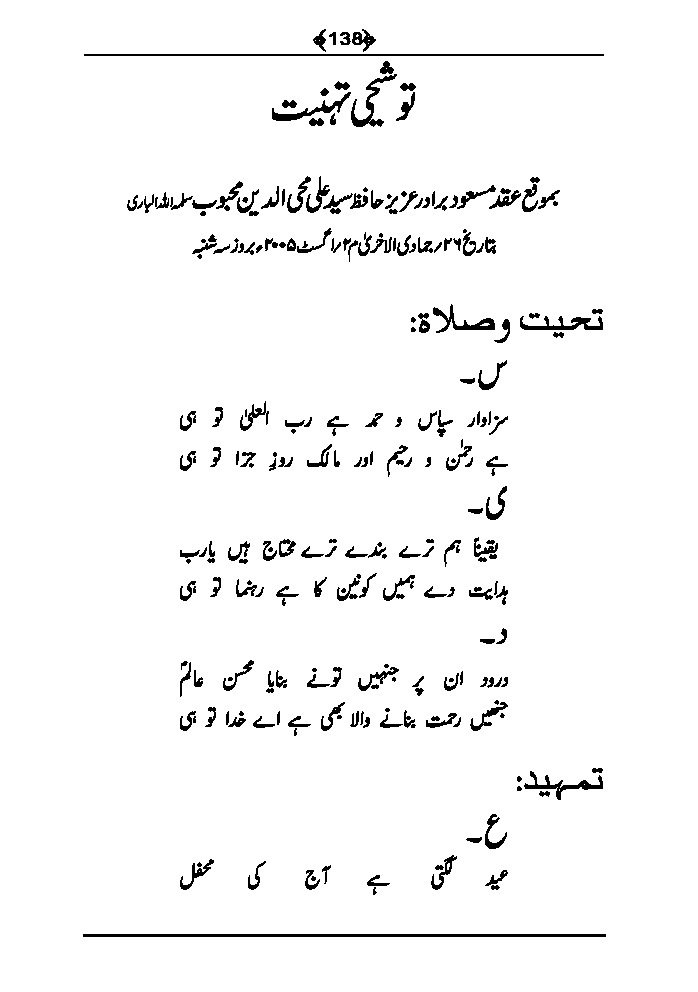 ﴿138﴾
توشیحی تہنیت
بموقع عقد مسعود برادر عزیز حافظ سید علی محی الدین محبوب سلمہ اللہ الباری
بتاریخ ۲۶/ جمادی الاخریٰ م ۲/ اگست ۲۰۰۵ء بروز سہ شنبہ
تحیت وصلاۃ:
س۔
سزاوار سپاس و حمد ہے رب العلیٰ تو ہی
ہے رحمٰن و رحیم اور مالک روزِ جزا تو ہی
ی۔
یقیناً ہم ترے بندے ترے محتاج ہیں یارب
ہدایت دے ہمیں کونین کا ہے رہنما تو ہی
د۔
درود ان پر جنہیں تونے بنایا محسن عالمؐ
جنھیں رحمت بنانے والا بھی ہے اے خدا تو ہی
تمہید:
ع۔
عید لگتی ہے آج کی محفل